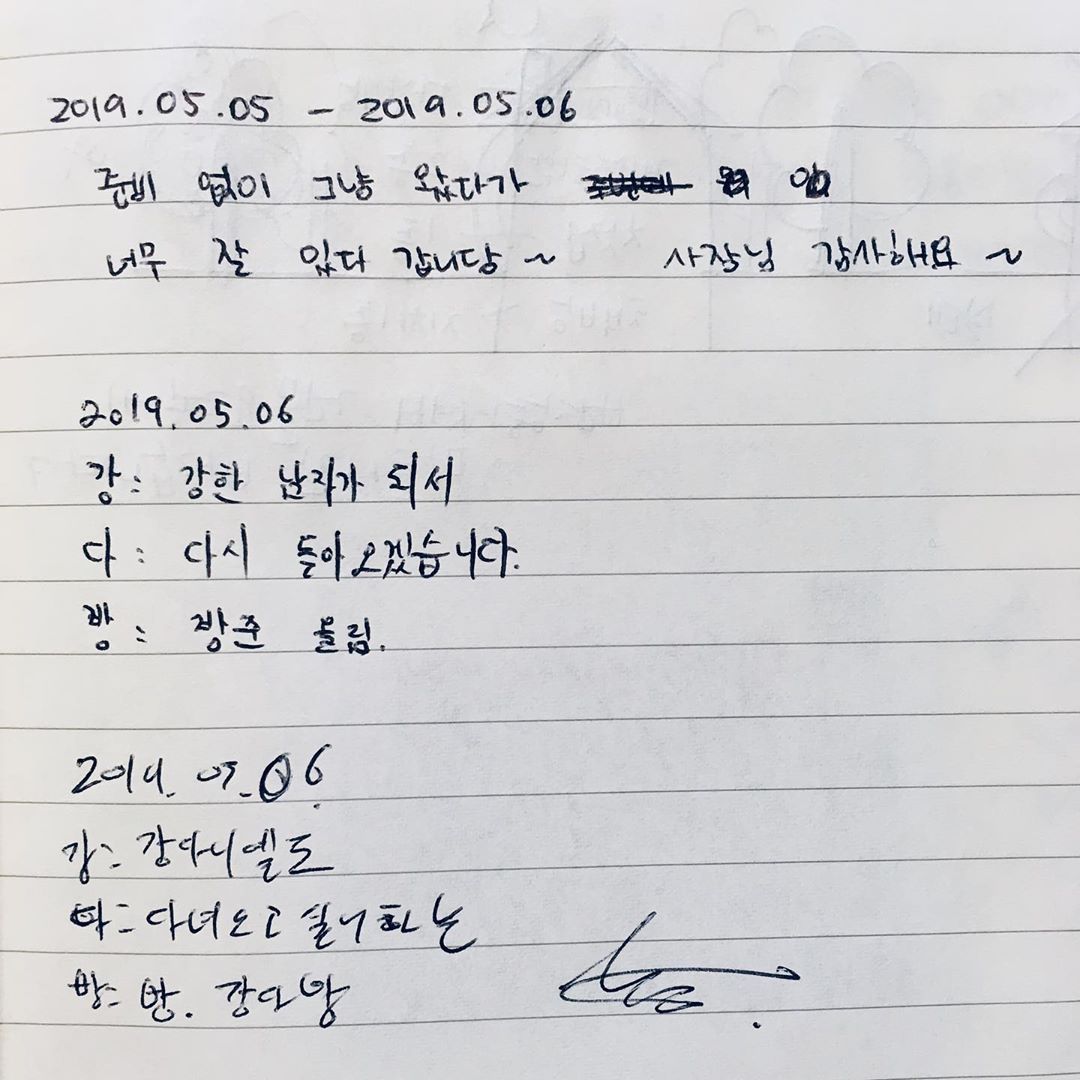 2019.05.05 - 2019.05.06
준비 없이 그냥 왔다가
너무 잘 있다 갑니당~ 사장님 감사해요~
2019.05.06
강: 강한 남자가 되서
다: 다시 돌아오겠습니다.
방: 방준 올림.
2019.05.06
강: 강다니엘도
다: 다녀오고 싶어하는
방: 방. 강다방